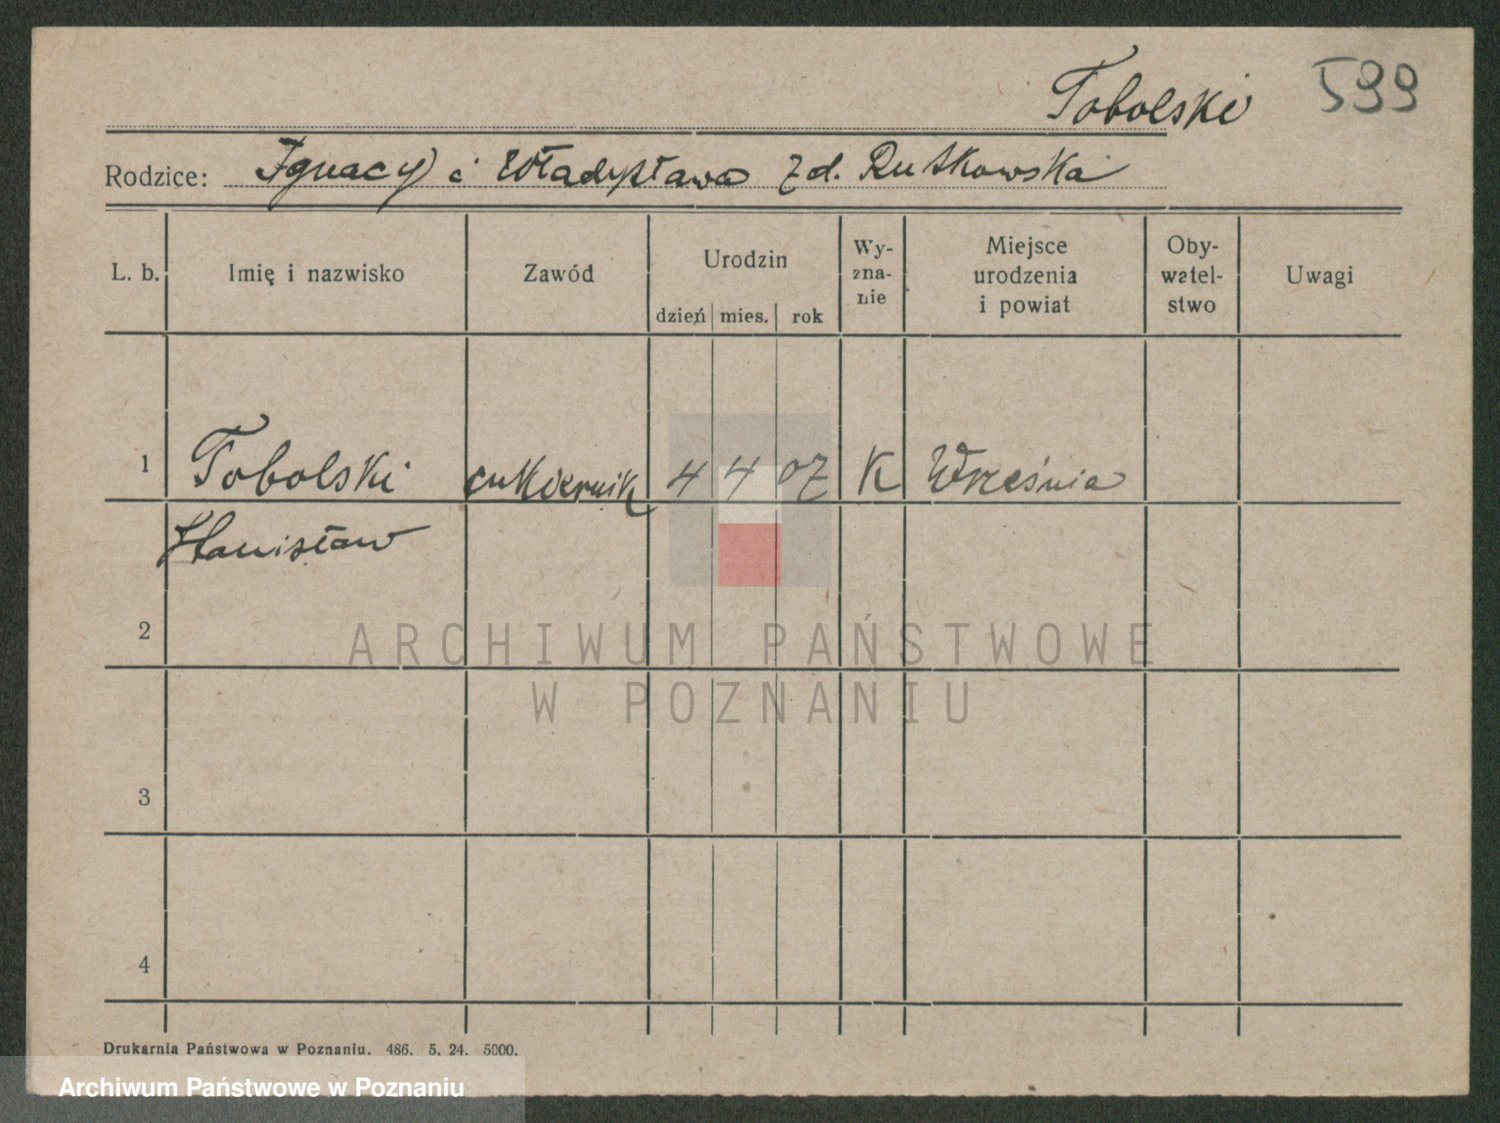 Tobolski 599
Rodzice: Ignacy i Władysława z d. Rutkowska
L. b. Imię i nazwisko Zawód Urodzin dzień mies. rok Wy-zna-nie Miejsce urodzenia i powiat Oby-watel-stwo Uwagi
1 Tobolski cukiernik 4 4 07 K Września
Stanisław
2
ARCHIWUM PAŃSTWOWE
W POZNANIU
3
4
Drukarnia Państwowa w Poznaniu. 486. 5. 24. 5000.
Archiwum Państwowe w Poznaniu